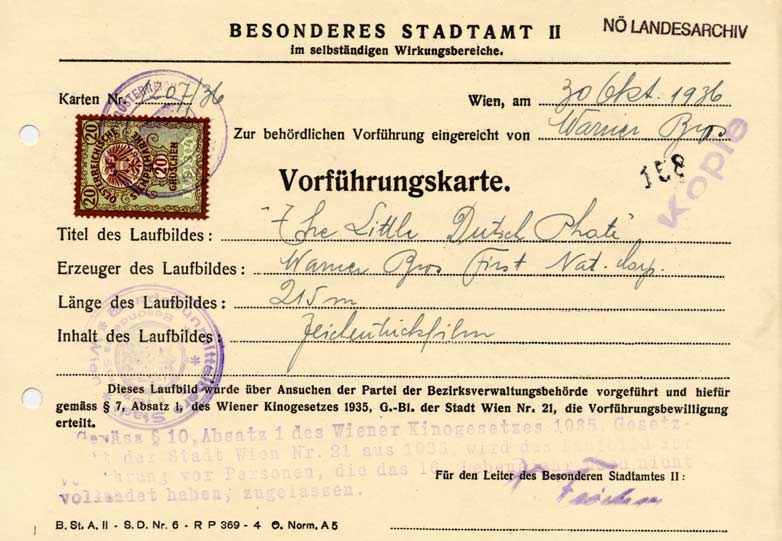 BESONDERES STADTAMT II
im selbständigen Wirkungsbereiche.
NÖ LANDESARCHIV
Karten Nr. 1207/36
Wien, am 30 Okt. 1936
Zur behördlichen Vorführung eingereicht von Warner Bros
20 ÖSTERREICHISCHE STEMPELMARKE 20 GROSCHEN 20
158
Kopie
Vorführungskarte.
Titel des Laufbildes: "The Little Dutsch Plate"
Erzeuger des Laufbildes: Warner Bros First Nat. Corp.
Länge des Laufbildes: 215 m
Inhalt des Laufbildes: Zeichentrickfilm
Dieses Laufbild wurde über Ansuchen der Partei der Bezirksverwaltungsbehörde vorgeführt und hiefür
gemäss § 7, Absatz 1, des Wiener Kinogesetzes 1935, G.-Bl. der Stadt Wien Nr. 21, die Vorführungsbewilligung
erteilt.
Gemäss § 10, Absatz 1 des Wiener Kinogesetzes 1935, Gesetz-
der Stadt Wien Nr. 21 aus 1935, wird das
vor Personen, die das 16. nicht
vollendet haben, zugelassen.
Für den Leiter des Besonderen Stadtamtes II:
B. St. A. II - S. D. Nr. 6 - R P 369 - 4 Ö. Norm. A 5